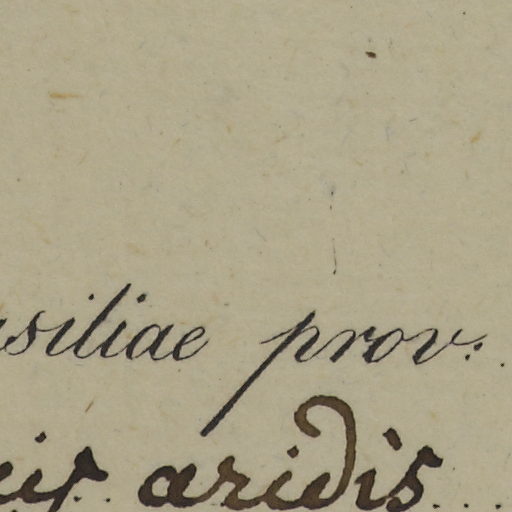 asiliae prov.
aridis